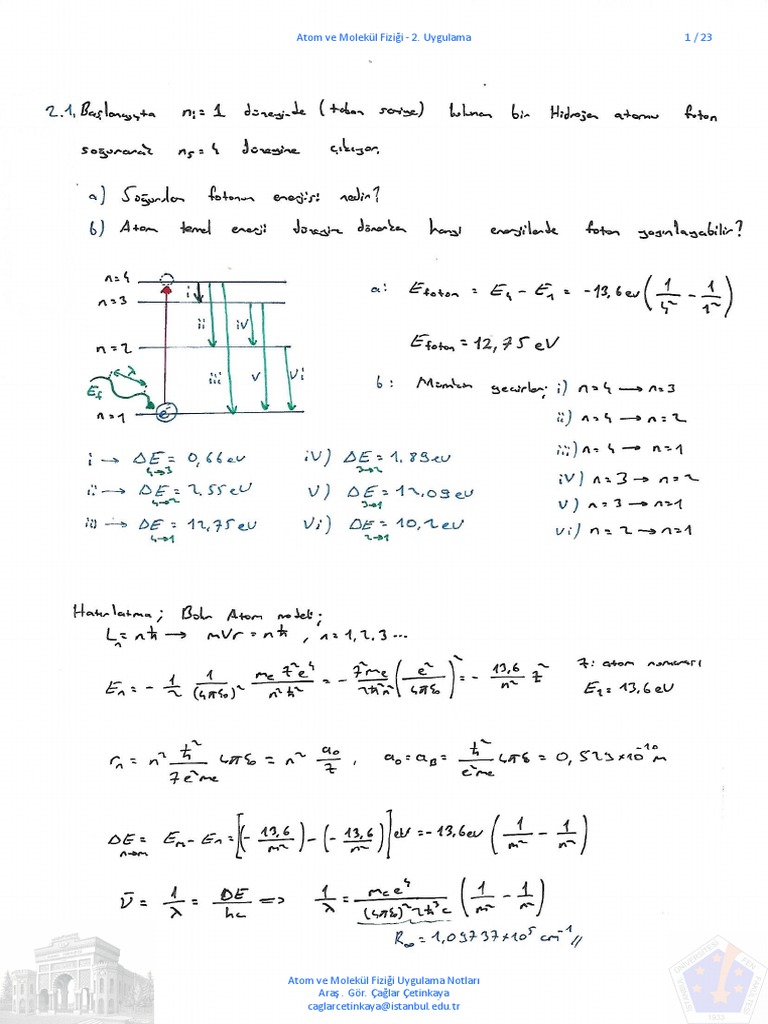 Atom ve Molekül Fiziği - 2. Uygulama
1 / 23
2.1. Başlangıçta nᵢ = 1 düzeyinde (taban seviye) bulunan bir Hidrojen atomu foton
soğurarak nₛ = 4 düzeyine çıkıyor.
a) Soğurulan fotonun enerjisi nedir?
b) Atom temel enerji düzeyine dönerken hangi enerjilerde foton yayınlayabilir?
n=4
n=3
n=2
n=1
i
ii
iii
iv
v
vi
λ
E_f
e⁻
a: E_foton = E₄ - E₁ = -13,6 eV (1/4² - 1/1²)
E_foton = 12,75 eV
b: Mümkün geçişler; i) n=4 → n=3
ii) n=4 → n=2
iii) n=4 → n=1
iv) n=3 → n=2
v) n=3 → n=1
vi) n=2 → n=1
i → ΔE 4→3 = 0,66 eV iv) ΔE 3→2 = 1,89 eV
ii → ΔE 4→2 = 2,55 eV v) ΔE 3→1 = 12,09 eV
iii) → ΔE 4→1 = 12,75 eV vi) ΔE 2→1 = 10,2 eV
Hatırlatma; Bohr Atom modeli;
L_n = nħ → mVr = nħ , n = 1,2,3 ...
E_n = - 1/2 1/(4πε₀)² m_e Z² e⁴/n² ħ² = - Z² m_e/2ħ² n² (e²/4πε₀)² = - 13,6/n² Z² Z: atom numarası
E_I = 13,6 eV
r_n = n² ħ²/Z e² m_e 4πε₀ = n² a₀/Z , a₀ = a_B = ħ²/e² m_e 4πε₀ = 0,529 × 10⁻¹⁰ m
ΔE n→m = E_m - E_n = [(- 13,6/m²) - (- 13,6/n²)] eV = -13,6 eV (1/m² - 1/n²)
ν̄ = 1/λ = ΔE/hc ⇒ 1/λ = m_e e⁴/(4πε₀)² 2ħ³c (1/m² - 1/n²)
R∞ = 1,09737 × 10⁵ cm⁻¹ //
Atom ve Molekül Fiziği Uygulama Notları
Araş . Gör. Çağlar Çetinkaya
caglarcetinkaya@istanbul.edu.tr
1933